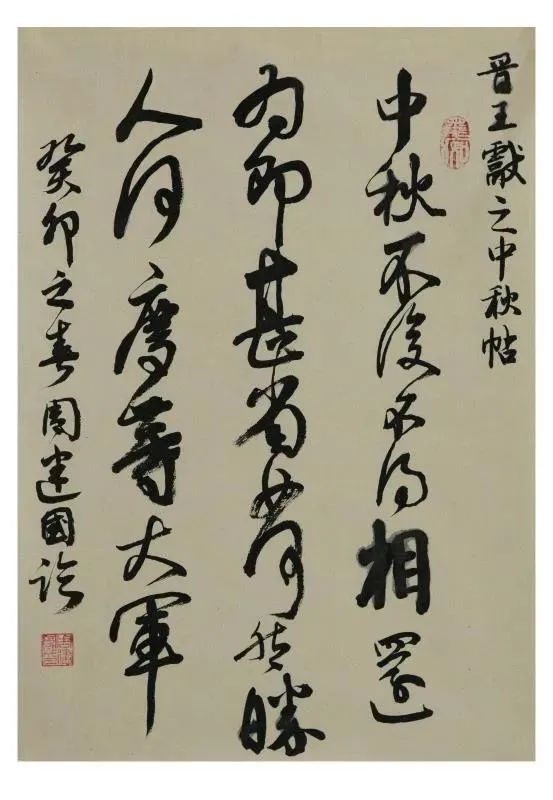 晋王獻之中秋帖
中秋不復不得相還
為即甚省如何然勝
人何慶等大軍
癸卯之春周建國臨